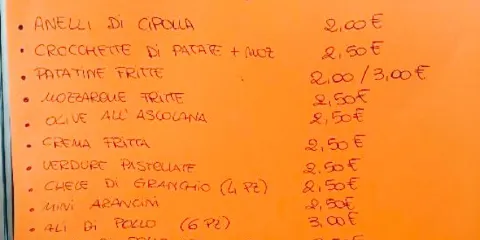 • ANELLI DI CIPOLLA 2,00€
• CROCCHETTE DI PATATE + MOZ 2,50€
• PATATINE FRITTE 2,00 / 3,00€
• MOZZARELLE FRITTE 2,50€
• OLIVE ALL'ASCOLANA 2,50€
• CREMA FRITTA 2,50€
• VERDURE PASTELLATE 2,50€
• CHELE DI GRANCHIO (4 PZ) 2,50€
• MINI ARANCINI 2,50€
• ALI DI POLLO (6 PZ) 3,00€